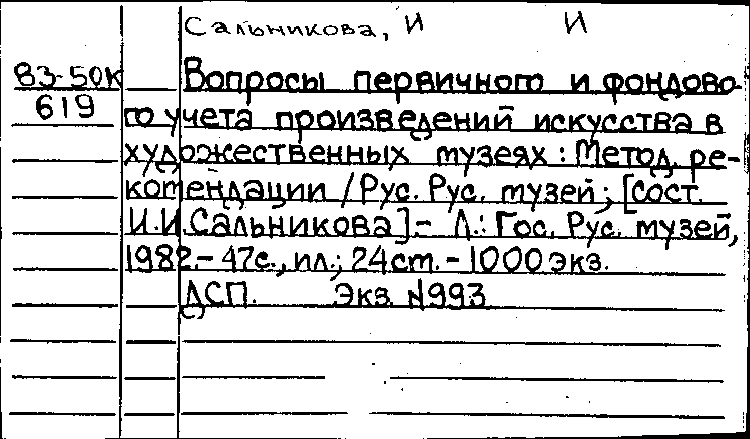 Сальникова, И И
83-50К Вопросы первичного и фондово-
619 го учета произведений искусства в
художественных музеях: Метод. ре-
комендации / Рус. Рус. музей; [сост.
И.И.Сальникова].- Л.: Гос. Рус. музей,
1982.- 47с., ил.; 24 см. - 1000 экз.
ДСП. Экз. №993